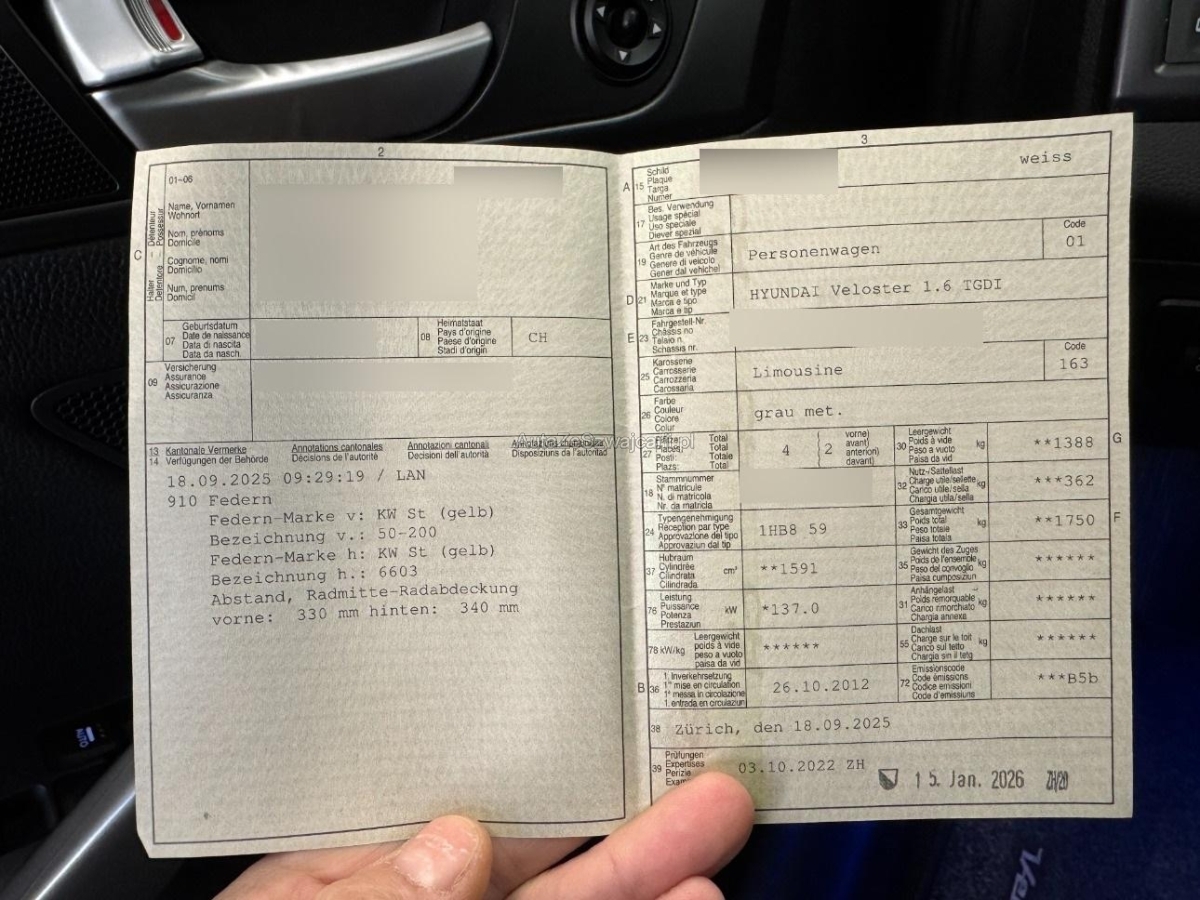 2
01-06
Halter Détenteur
Detentore Possessur
Name, Vornamen
Wohnort
Nom, prénoms
Domicile
Cognome, nomi
Domicilio
Num, prenums
Domicil
C
07
Geburtsdatum
Date de naissance
Data di nascita
Data da nasch.
08
Heimatstaat
Pays d'origine
Paese d'origine
Stadi d'origin
CH
09
Versicherung
Assurance
Assicurazione
Assicuranza
13 Kantonale Vermerke Annotations cantonales Annotazioni cantonali
14 Verfügungen der Behörde Décisions de l'autorité Decisioni dell'autorità Disposiziuns da l'autoritad
18.09.2025 09:29:19 / LAN
910 Federn
Federn-Marke v: KW St (gelb)
Bezeichnung v.: 50-200
Federn-Marke h: KW St (gelb)
Bezeichnung h.: 6603
Abstand, Radmitte-Radabdeckung
vorne: 330 mm hinten: 340 mm
3
A 15
Schild
Plaque
Targa
Numer
weiss
17
Bes. Verwendung
Usage spécial
Uso speciale
Diever spezial
19
Art des Fahrzeugs
Genre de véhicule
Genere di veicolo
Gener dal vehichel
Personenwagen
Code
01
D 21
Marke und Typ
Marque et type
Marca e tipo
Marca e tip
HYUNDAI Veloster 1.6 TGDI
E 23
Fahrgestell-Nr.
Châssis no
Telaio n.
Schassis nr.
25
Karosserie
Carrosserie
Carrozzeria
Carossaria
Limousine
Code
163
26
Farbe
Couleur
Colore
Colur
grau met.
27
Plätze: Total
Places: Total
Posti: Totale
Plazs: Total
4
2
vorne)
avant)
anteriori)
davant)
30
Leergewicht
Poids à vide
Peso a vuoto
Paisa da vid
kg
**1388
G
18
Stammnummer
N° matricule
N. di matricola
Nr. da matricla
32
Nutz-/Sattellast
Charge utile/sellette
Carico utile/sella
Chargia utila/sella
kg
***362
24
Typengenehmigung
Réception par type
Approvazione del tipo
Approvaziun dal tip
1HB8 59
33
Gesamtgewicht
Poids total
Peso totale
Paisa totala
kg
**1750
F
37
Hubraum
Cylindrée
Cilindrata
Cilindrada
cm³
**1591
35
Gewicht des Zuges
Poids de l'ensemble
Peso del convoglio
Paisa cumposiziun
kg
******
76
Leistung
Puissance
Potenza
Prestaziun
kW
*137.0
31
Anhängelast
Poids remorquable
Carico rimorchiato
Chargia annexa
kg
******
78 kW/kg
Leergewicht
poids à vide
peso a vuoto
paisa da vid
******
55
Dachlast
Charge sur le toit
Carico sul tetto
Chargia sin il tetg
kg
******
B 36
1. Inverkehrsetzung
1re mise en circulation
1a messa in circolazione
1. entrada en circulaziun
26.10.2012
72
Emissionscode
Code émissions
Codice emissioni
Code d'emissiuns
***B5b
38
Zürich, den 18.09.2025
39
Prüfungen
Expertises
Perizie
03.10.2022 ZH
15. Jan. 2026 ZH/20
AUTO